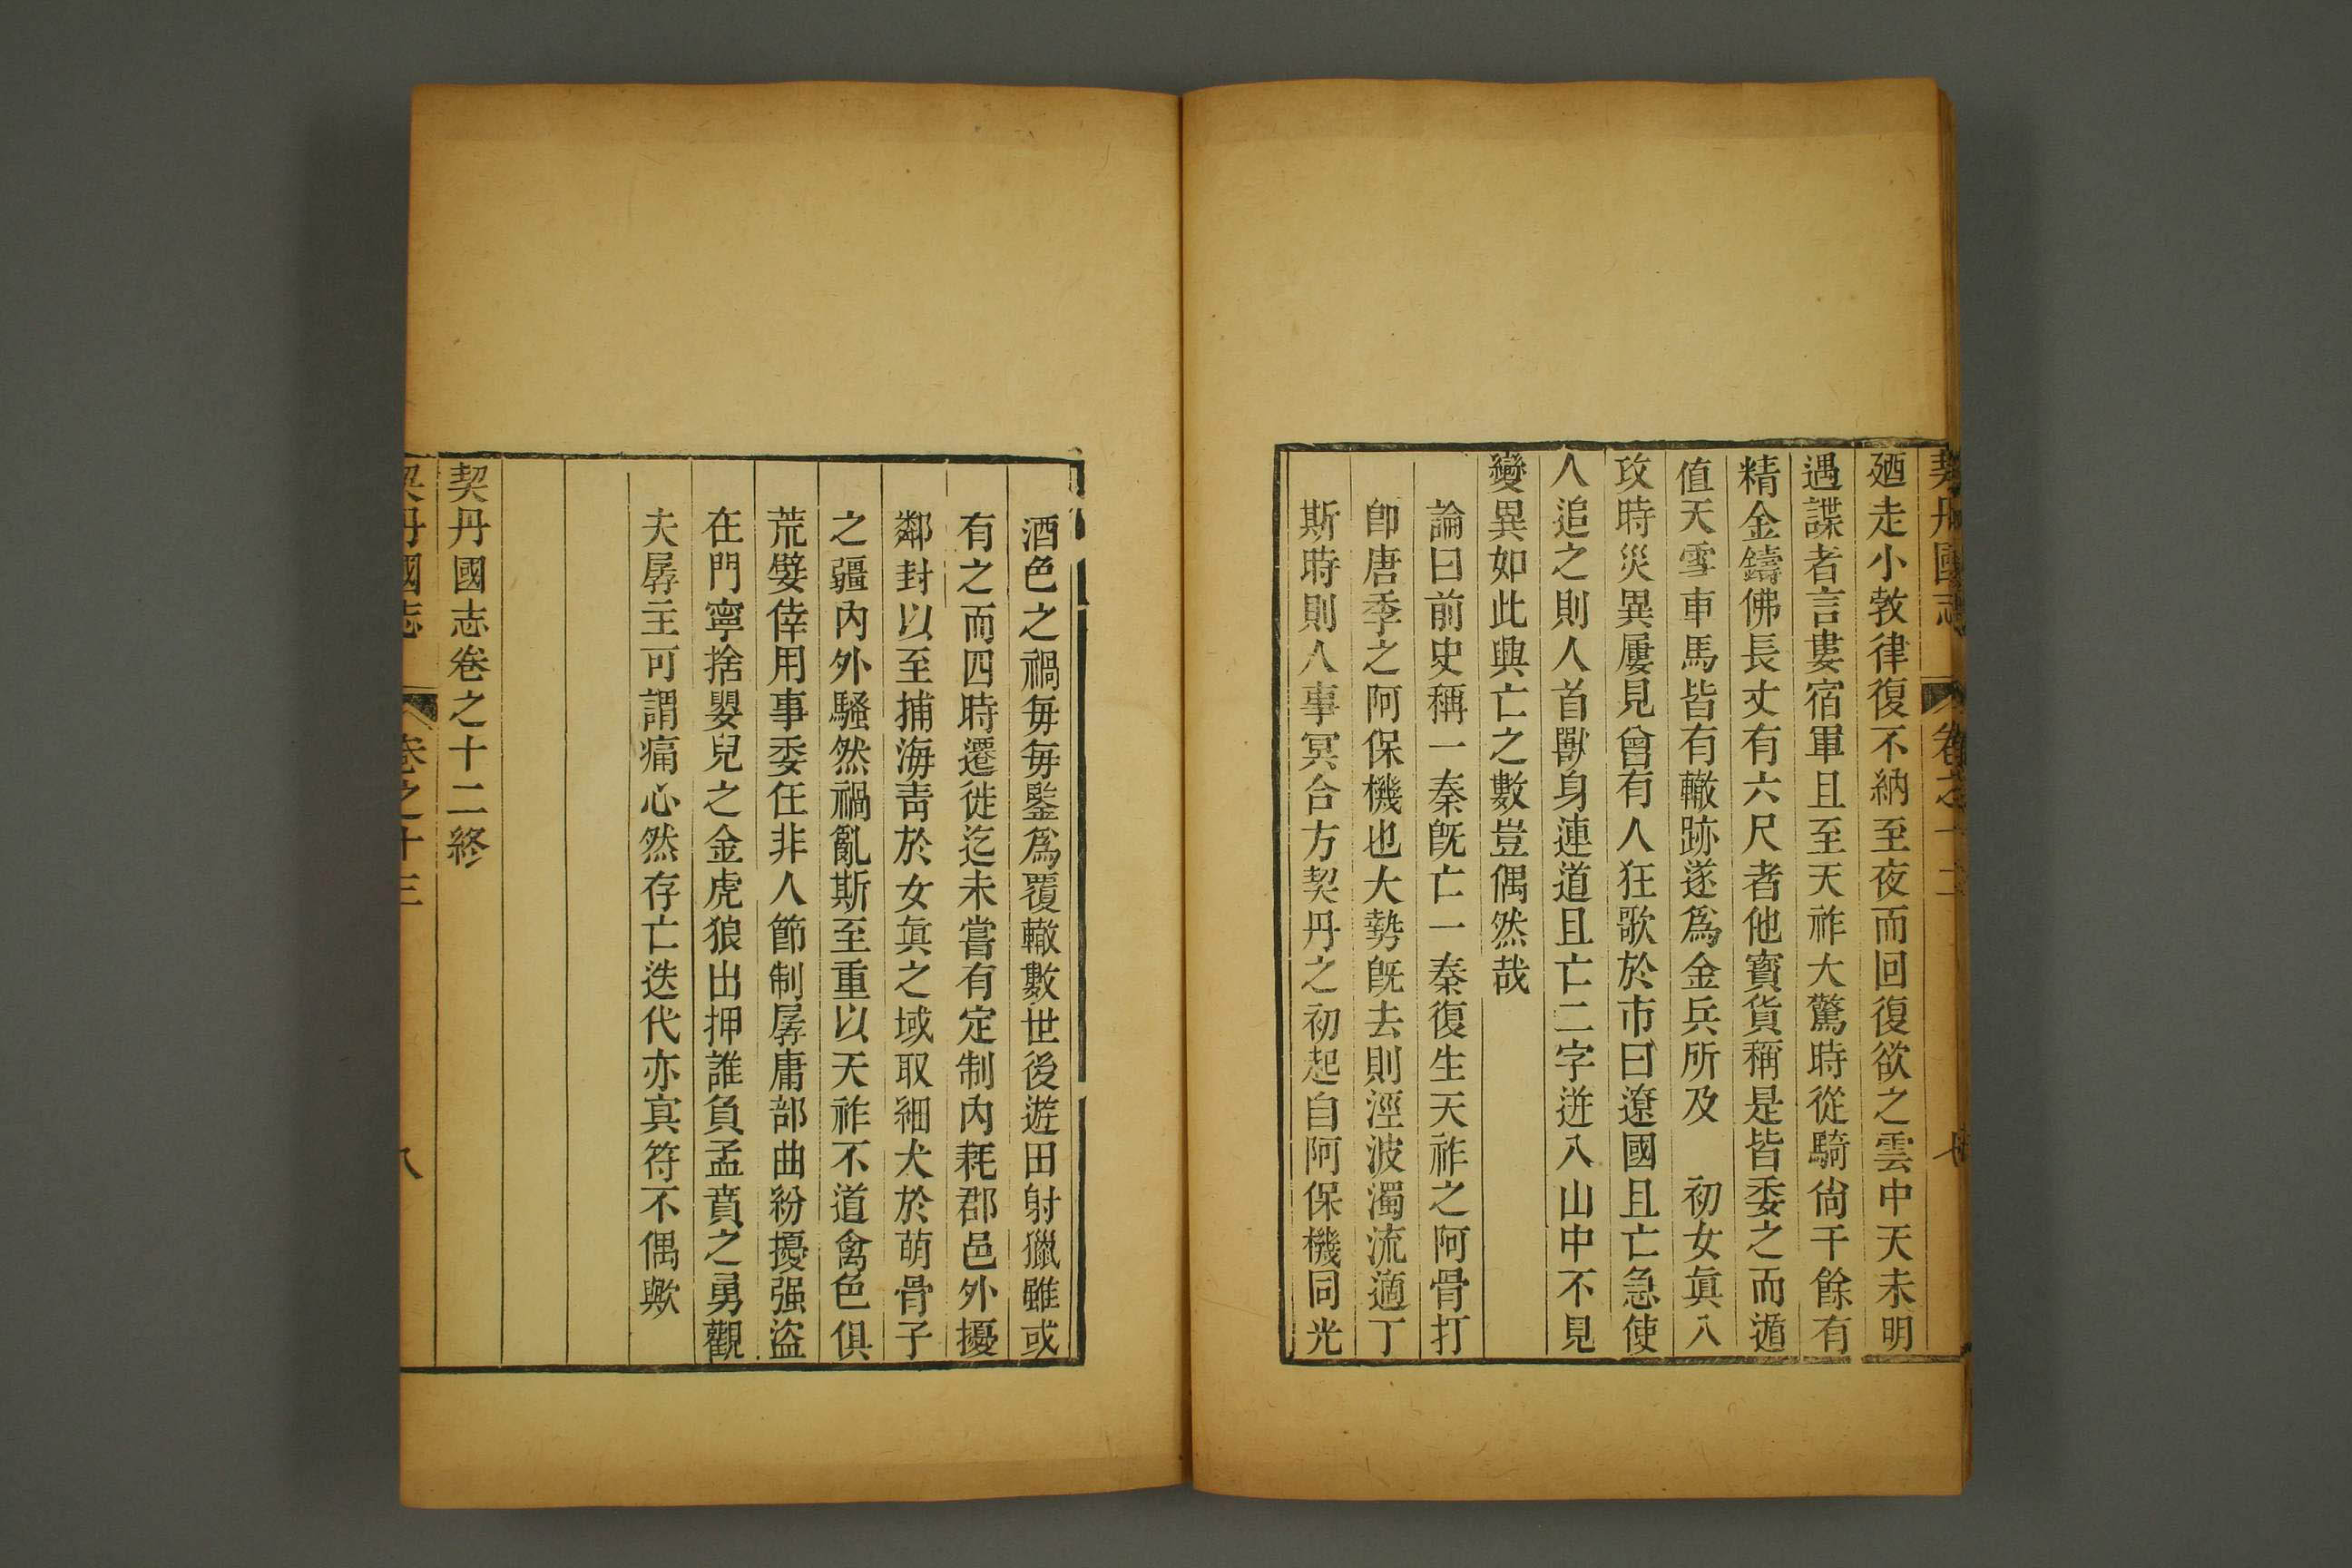 契丹國志 卷之十二 七
廼走小敦律復不納至夜而回復欲之雲中天未明
遇諜者言婁宿軍且至天祚大驚時從騎尙千餘有
精金鑄佛長丈有六尺者他寳貨稱是皆委之而遁
值天雪車馬皆有轍跡遂爲金兵所及 初女眞入
攻時災異屢見曾有人狂歌於市曰遼國且亡急使
人追之則人首獸身連道且亡二字迸入山中不見
變異如此興亡之數豈偶然哉
論曰前史稱一秦旣亡一秦復生天祚之阿骨打
卽唐季之阿保機也大勢旣去則涇波濁流適丁
斯時則人事冥合方契丹之初起自阿保機同光
酒色之禍毎毎鑒爲覆轍數世後遊田射獵雖或
有之而四時遷徙迄未嘗有定制內耗郡邑外擾
鄰封以至捕海靑於女眞之域取細犬於萌骨子
之疆內外騷然禍亂斯至重以天祚不道禽色俱
荒嬖倖用事委任非人節制孱庸部曲紛擾强盜
在門寧捨嬰兒之金虎狼出押誰負孟賁之勇觀
夫孱主可謂痛心然存亡迭代亦寘符不偶歟
契丹國志卷之十二終
契丹國志 卷之十三 八